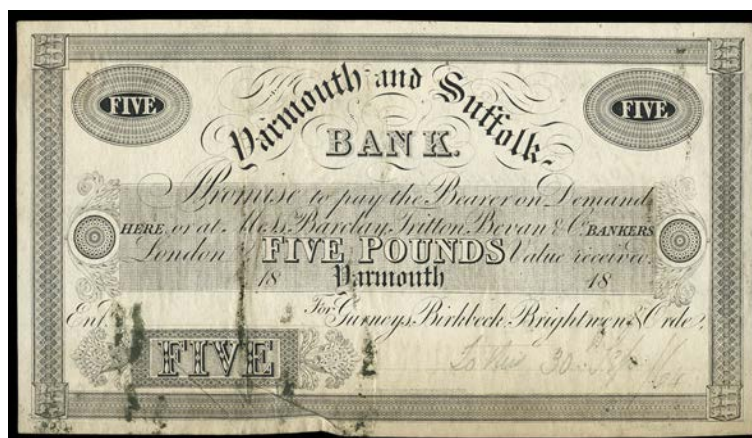 FIVE FIVE
Yarmouth and Suffolk
BANK.
I Promise to pay the Bearer on Demand
HERE, or at Mess. Barclay, Tritton, Bevan & Co. BANKERS
London FIVE POUNDS Value received.
18 Yarmouth 18
For Gurneys, Birkbeck, Brightwen & Orde,
Ent.
FIVE
30